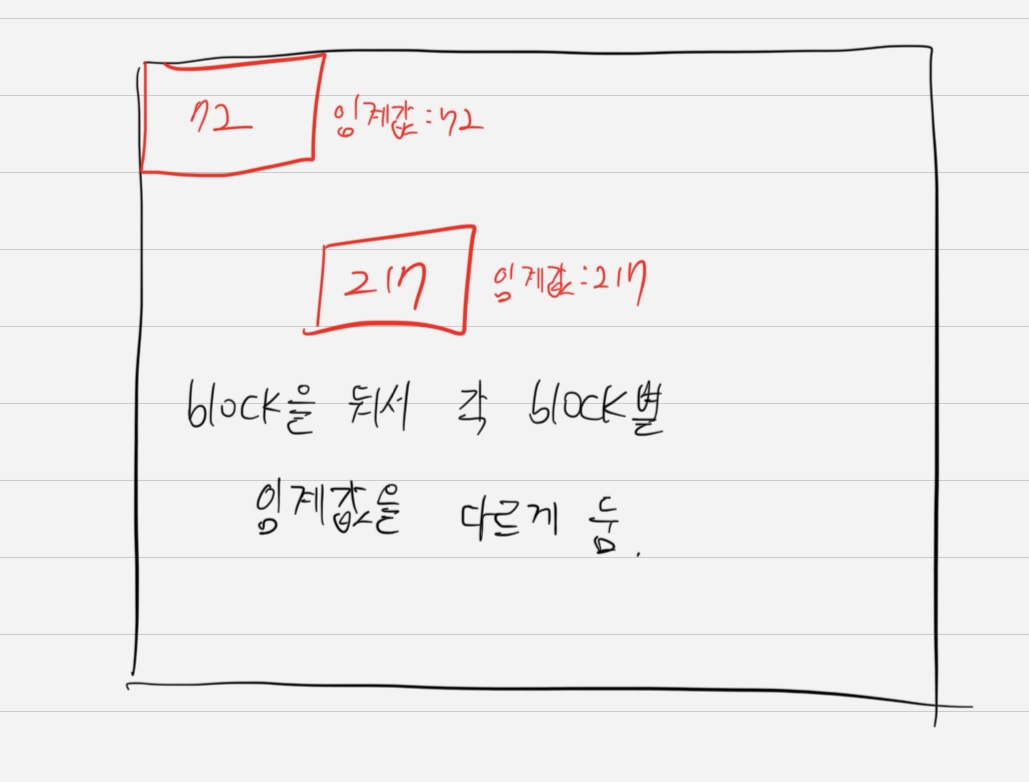 72 임계값:72
217 임계값:217
block을 둬서 각 block별
임계값을 다르게 둠.